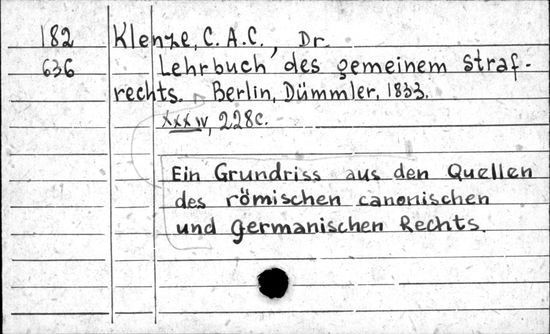 182 Klenze, C. A. C., Dr.
636 Lehrbuch des gemeinem Straf-
rechts. Berlin, Dümmler, 1833.
XXXIV, 228c.
Ein Grundriss aus den Quellen
des römischen canonischen
und germanischen Rechts.